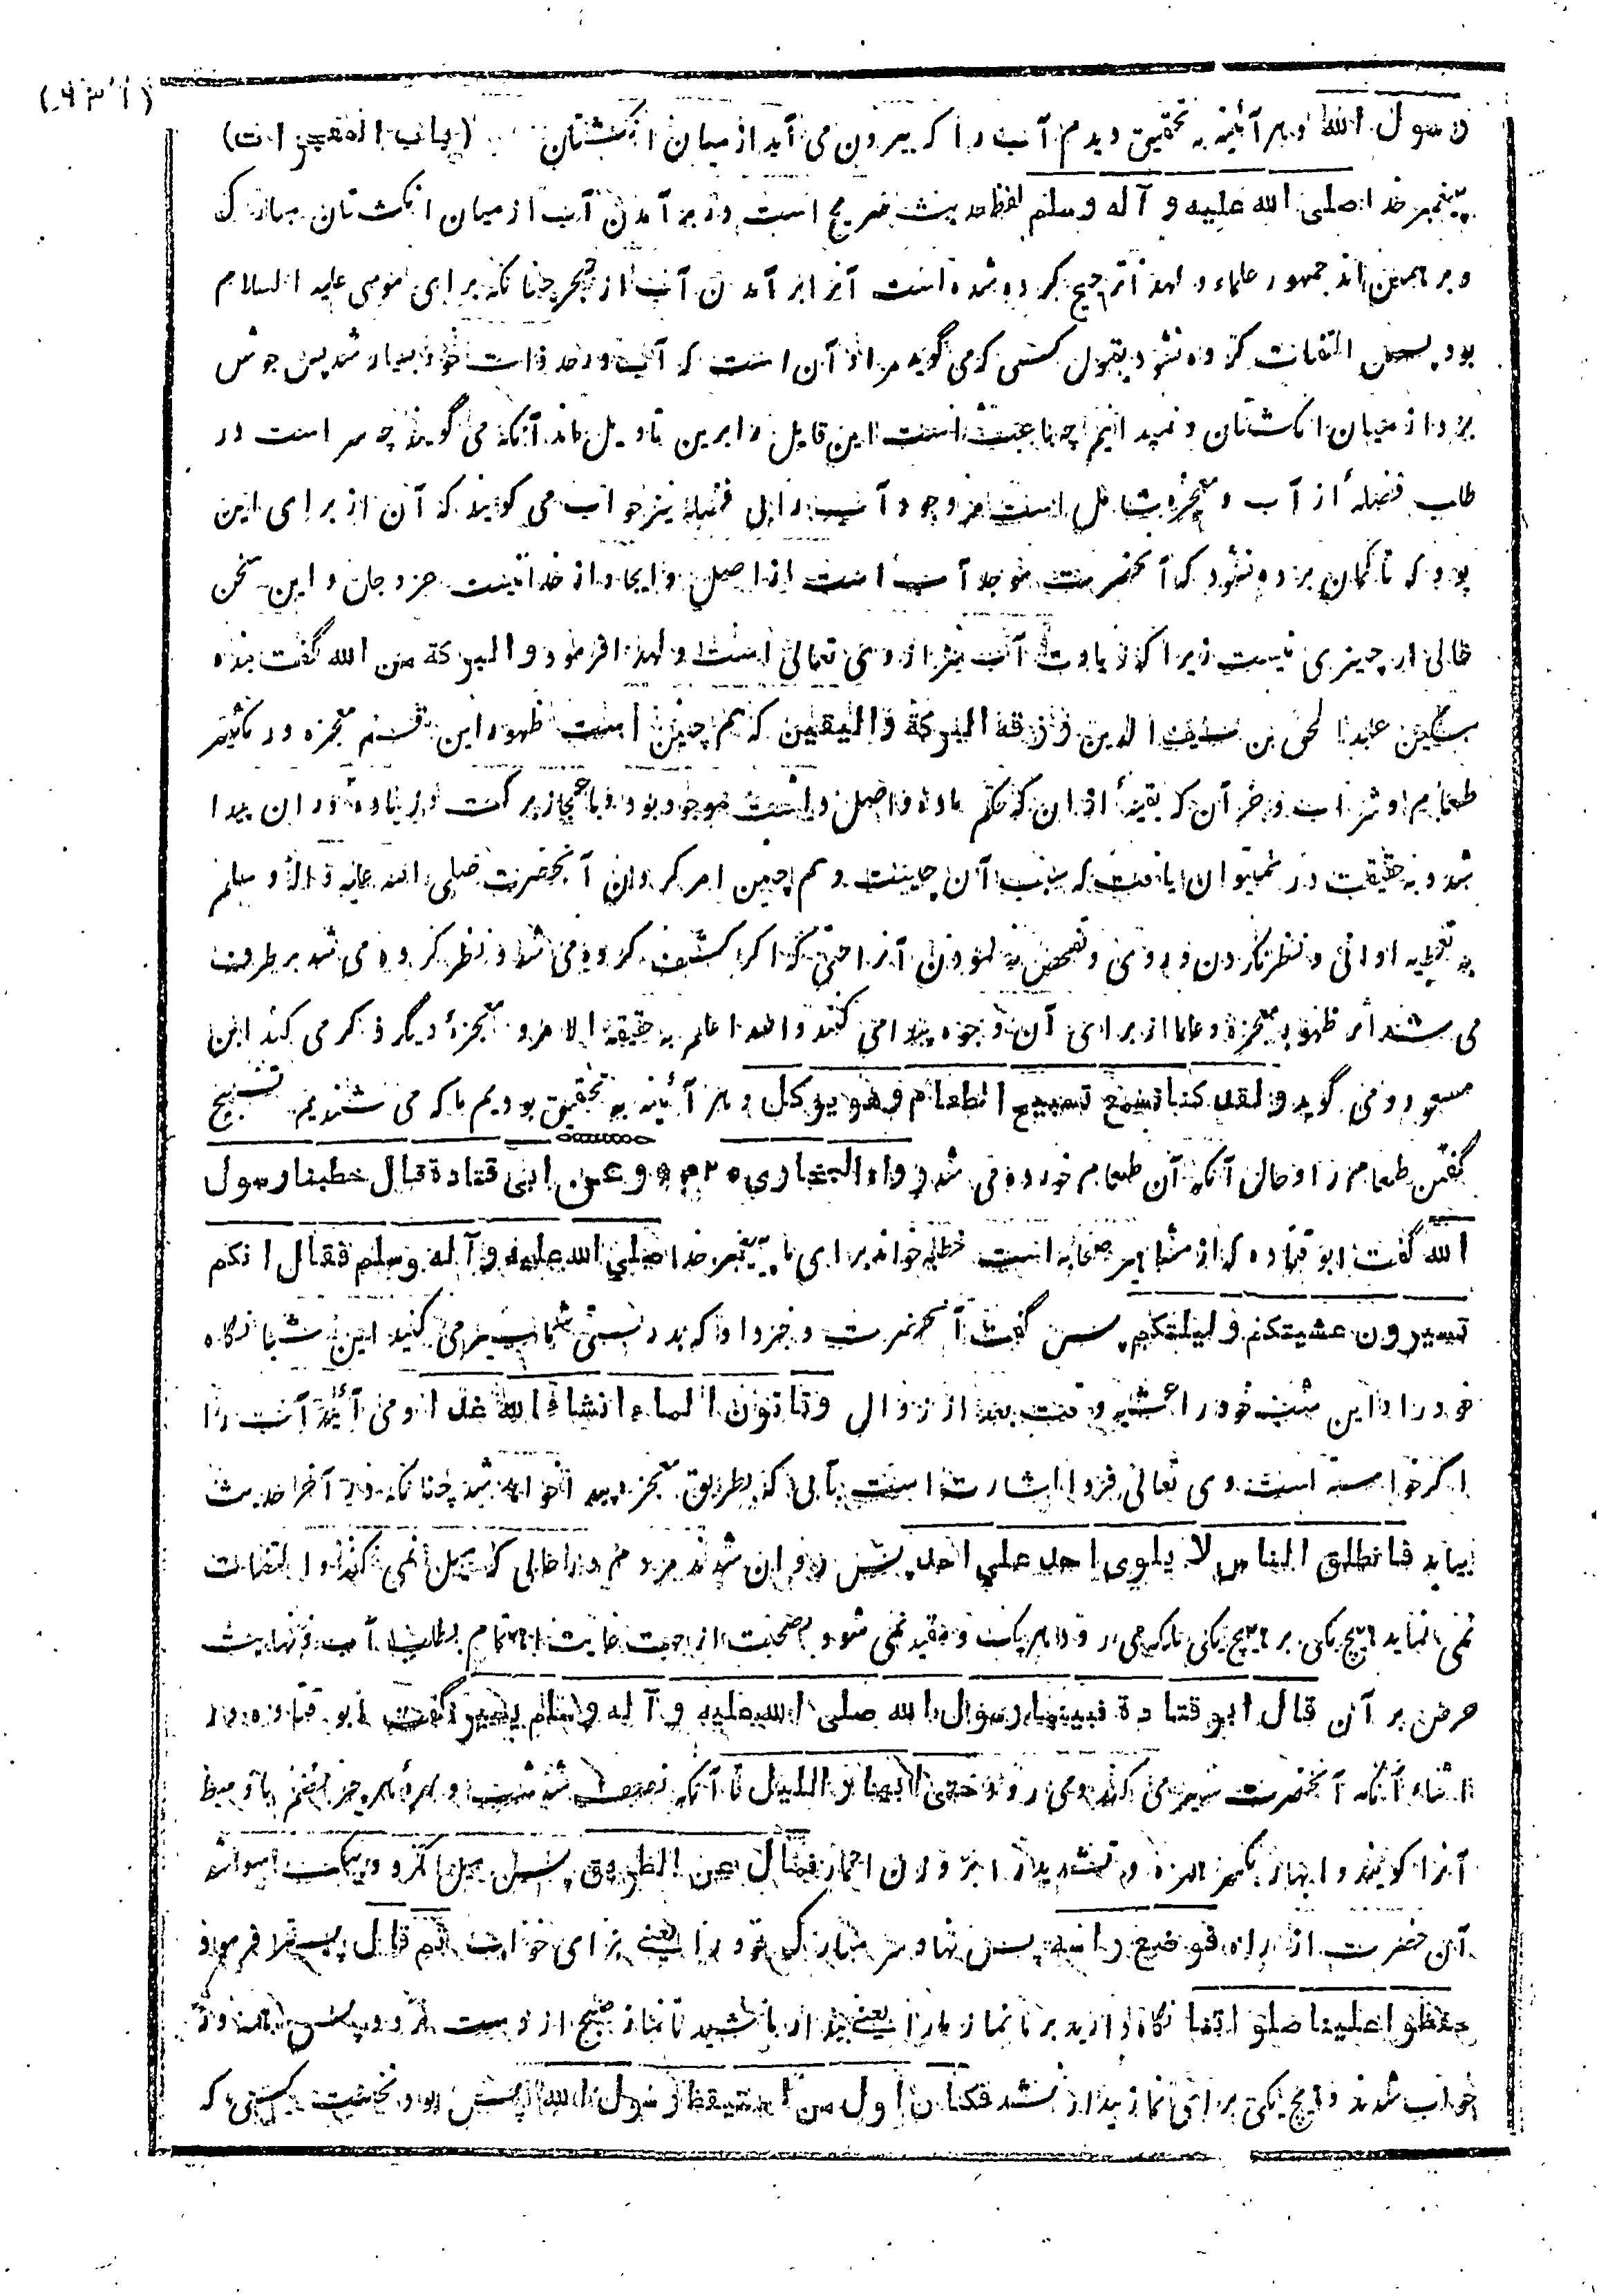 رسول الله و هر آئینه به تحقیق دیدم آب را که بیرون می آید از میان انگشتان (باب المعجزات)
پیغمبر خدا صلی الله علیه و آله وسلم لفظ حدیث صریح است در بر آمدن آب از میان انگشتان مبارک
و بر همین اند جمهور علماء و لهذا ترجیح کرده شده است آنرا بر آمدن آب از حجر چنانکه برای موسی علیه السلام
بود پس التفات کرده نشود بقول کسی که می گوید مراد آن است که آب در حد ذات خود بسیار شد پس جوش
بزد از میان انگشتان و نمیدانیم چه باعث است این قایل را برین تاویل ماند آنکه می گویند چه سر است در
طلب فضلهٔ از آب و معجزه شامل است مر وجود آب را بی فضله نیز جواب می گویند که آن از برای این
بود که تا گمان برده نشود که آنحضرت موجد آب است از اصل و ایجاد از خدا نیست جز و جان و این سخن
خالی از چیزی نیست زیرا که زیادت آب نیز از وی تعالی است و لهذا فرمود و البركة من الله گفت بنده
مسکین عبد الحق بن سیف الدین رزقه البركة واليقين که هم چنین است ظهور این قسم معجزه در تکثیر
طعام و شراب و جز آن که بقیهٔ ازان که حکم ماده و اصل داشت موجود بود و باعجاز برکت و زیاده در ان پیدا
شد و به حقیقت در نمیتوان یافت که سبب آن چیست و هم چنین امر کردن آنحضرت صلی الله علیه و آله و سلم
به تغطیه اوانی و نظر نکردن در وی و تفحص نه نمودن آنرا حتی که اگر کشف کرده می شد و نظر کرده می شد بر طرف
می شد اثر ظهور معجزه و علما از برای آن وجوه پیدا می کنند و الله اعلم به حقیقة الامر و معجزهٔ دیگر ذکر می کند ابن
مسعود و می گوید و لقد كنا نسمع تسبيح الطعام وهو يؤكل و هر آئینه به تحقیق بودیم ما که می شنیدیم تسبیح
گفتن طعام را و حال آنکه آن طعام خورده می شد رواه البخاري وعن ابي قتادة قال خطبنا رسول
الله گفت ابو قتاده که از مشاهیر صحابه است خطبه خواند برای ما پیغمبر خدا صلي الله عليه و آله وسلم فقال انكم
تسيرون عشيتكم وليلتكم پس گفت آنحضرت و خبر داد که بدرستی شما سیر می کنید این شبانگاه
خود را و این شب خود را عشیه وقت بعد از زوال وتاتون الماء انشاء الله غدا و می آئید آب را
اگر خواسته است وی تعالی فردا اشارت است بآبی که بطریق معجزه پیدا خواهد شد چنانکه در آخر حدیث
بیاید فانطلق الناس لا يلوي احد علي احد پس روان شدند مردم در حالی که میل نمی کند و التفات
نمی نماید هیچ یکی بر هیچ یکی بلکه می رود هر یک و مقید نمی شود بصحبت از جهت غایت اهتمام بطلب آب و نهایت
حرص بر آن قال ابو قتادة فبينما رسول الله صلى الله عليه و آله وسلم يسير گفت ابو قتاده در
اثناء آنکه آنحضرت سیر می کند و می رود حتى ابهار الليل تا آنکه نصف شد شب و بهرهٔ هر چیز بضم با وسط
آنرا گویند و ابهار بکسر همزه و تشدید را بر وزن احمار فمال عن الطريق پس میل کرد و یکسو شد
آن حضرت از راه فوضع راسه پس نهاد سر مبارک خود را یعنی برای خواب ثم قال پستر فرمود
احفظوا علينا صلوتنا نگاه دارید بر ما نماز ما را یعنی بیدار باشید تا نماز صبح از دست نرود پس همه در
خواب شدند و هیچ یکی برای نماز بیدار نشد فكان اول من استيقظ رسول الله پس بود نخست کسی که